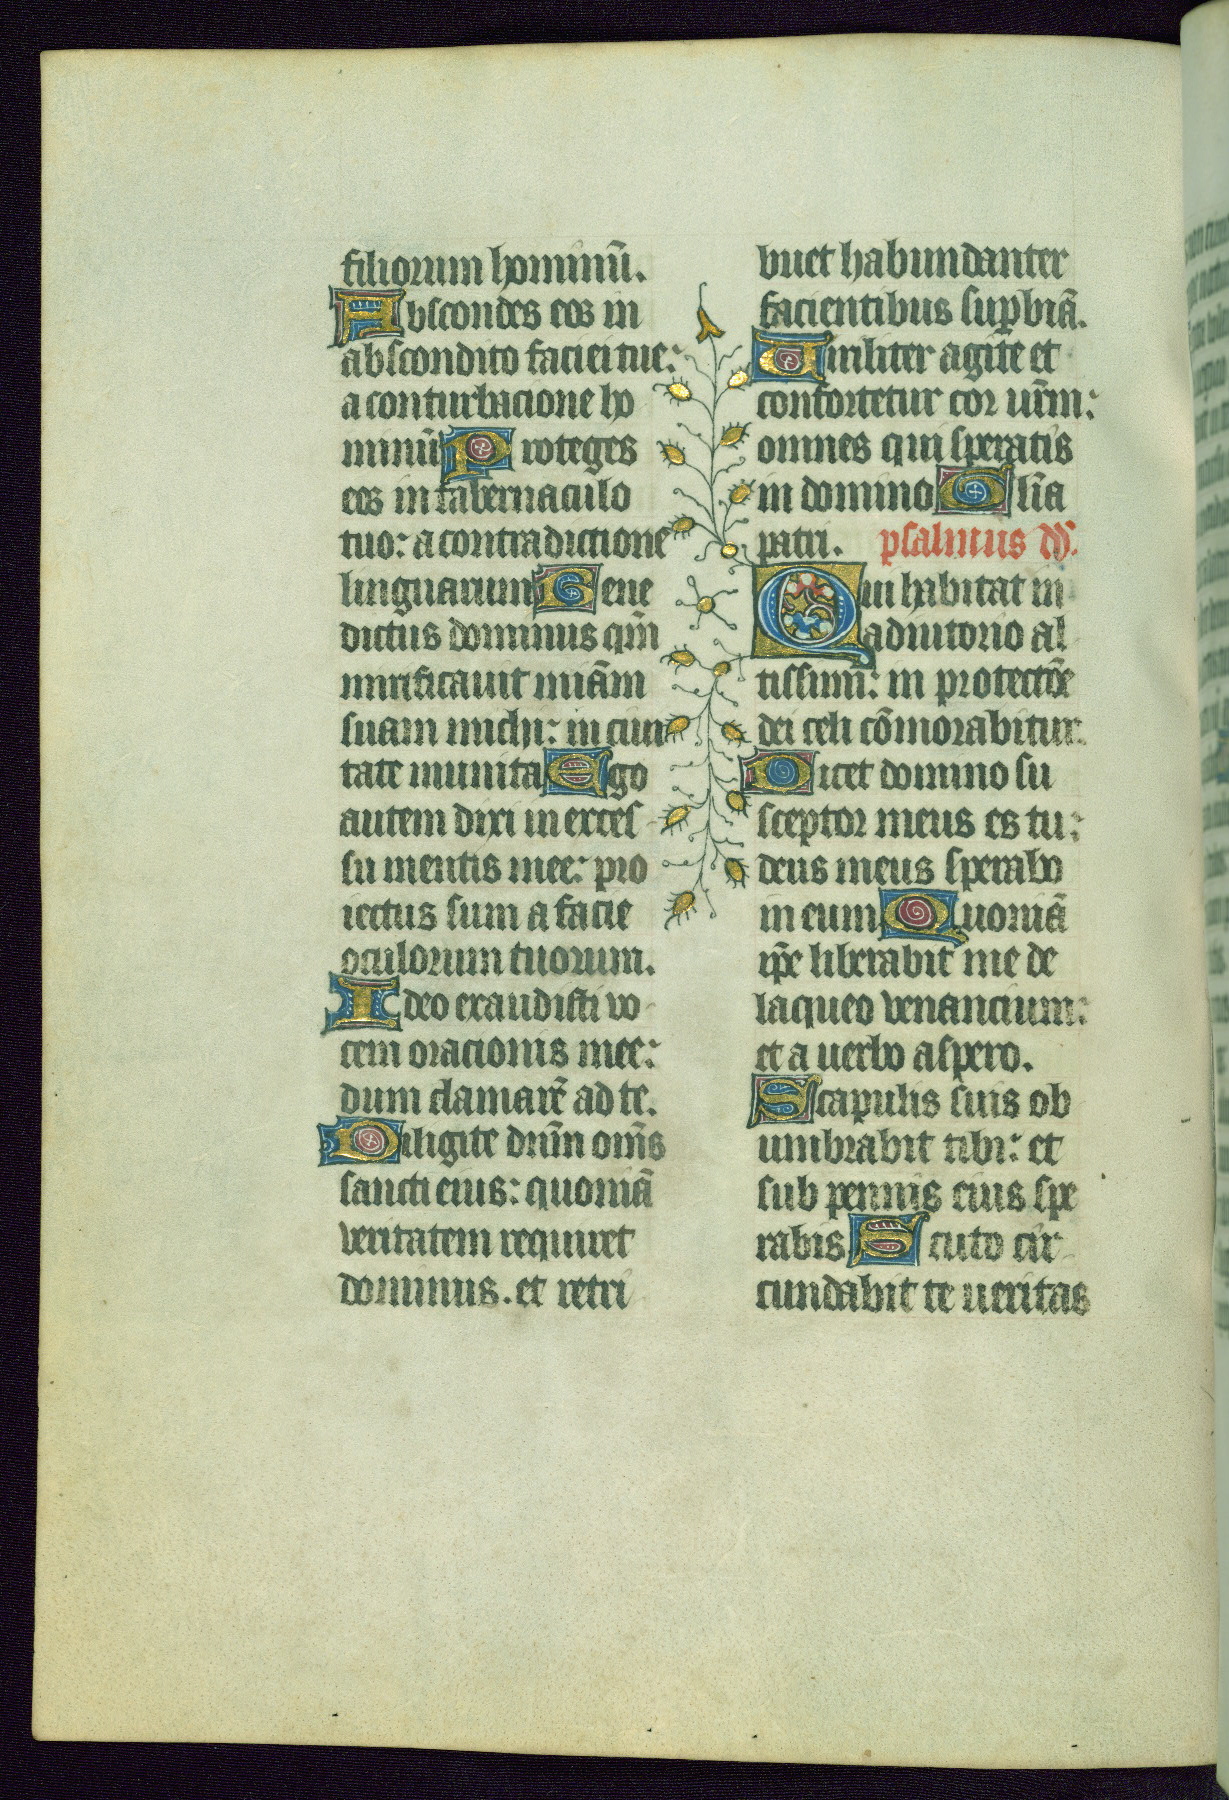 filiorum hominū.
Abscondes eos in
abscondito faciei tue:
a conturbacione ho
minū Proteges
eos in tabernaculo
tuo: a contradictione
linguarum Bene
dictus dominus qm̄
mirificauit miām
suam michi: in ciui
tate munita Ego
autem dixi in exces
su mentis mee: pro
iectus sum a facie
oculorum tuorum.
Ideo exaudisti vo
cem oracionis mee:
dum clamarē ad te.
Diligite dn̄m om̄s
sancti eius: quoniā
veritatem requiret
dominus. et retri
buet habundanter
facientibus suꝑbiā.
Uiriliter agite et
confortetur cor ur̄m:
omnes qui speratis
in domino Gl̄ia
patri. psalmus dd.
Qui habitat in
adiutorio al
tissimi: in protectōe
dei celi cōmorabitur
Dicet domino su
sceptor meus es tu:
deus meus sperabo
in eum Quoniā
ip̄e liberabit me de
laqueo venancium:
et a uerbo aspero.
Scapulis suis ob
umbrabit tibi: et
sub pennis eius spe
rabis Scuto cir
cundabit te ueritas